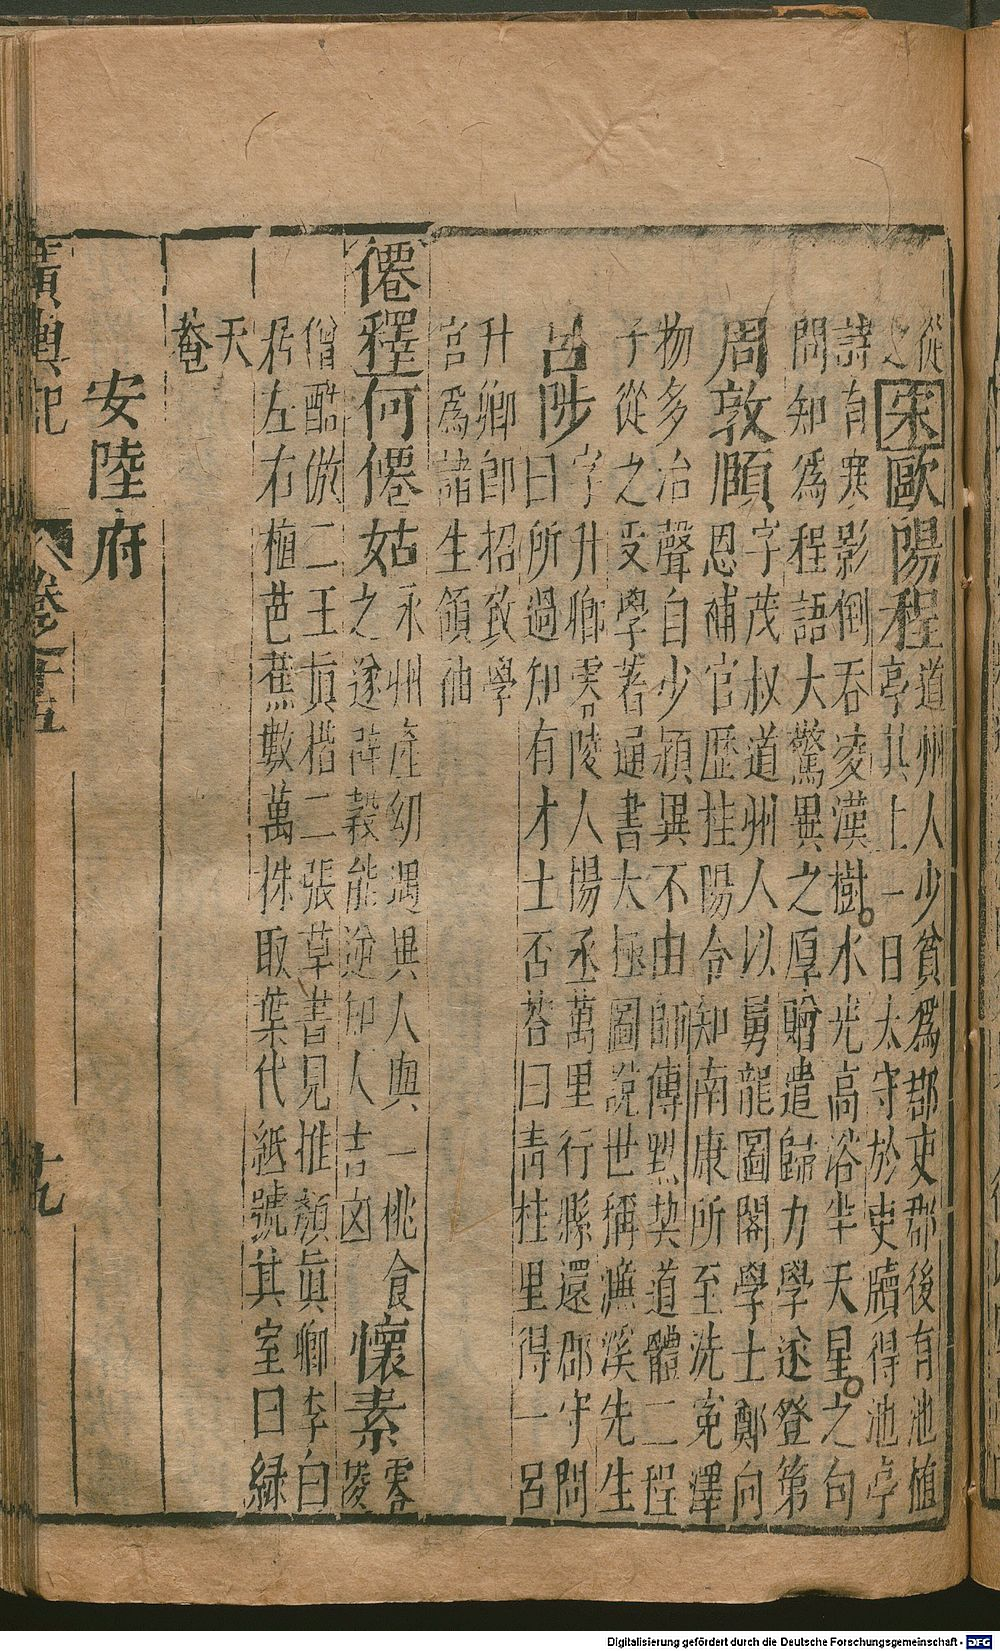 從
之
宋歐陽程
道州人少貧爲郡吏郡後有池植
亭其上一日太守於吏牘得池亭
詩有寒影倒吞凌漢樹水光高浴半天星之句
問知爲程語大驚異之厚贈遣歸力學遂登第
周敦頤
字茂叔道州人以舅龍圖閣學士鄭向
恩補官歷桂陽令知南康所至洗寃澤
物多冶聲自少頴異不由師傳默契道體二程
子從之受學著通書太極圖說世稱濂溪先生
呂陟
字升卿零陵人楊丞萬里行縣還郡守問
曰所過知有才士否荅曰青桂里得一呂
升卿即招致學
宮爲諸生領袖
僊釋何僊姑
永州產幼遇異人與一桃食
之遂辟穀能逆知人吉凶
懷素
零
陵
僧酷倣二王眞楷二張草書見推顏眞卿李白
居左右植芭蕉數萬株取葉代紙號其室曰綠
天
菴
安陸府
廣輿記 卷之十五 十九
Digitalisierung gefördert durch die Deutsche Forschungsgemeinschaft - DFG